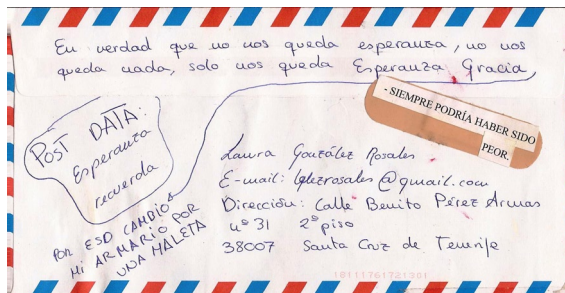 En verdad que no nos queda esperanza, no nos
queda nada, solo nos queda Esperanza Gracia,
- SIEMPRE PODRÍA HABER SIDO
PEOR.
POST DATA:
Esperanza
recuerda
POR ESO CAMBIO
MI ARMARIO POR
UNA MALETA
Laura González Rosales
E-mail: lglezrosales@gmail.com
Dirección: Calle Benito Pérez Armas
nº 31 2º piso
38007 Santa Cruz de Tenerife